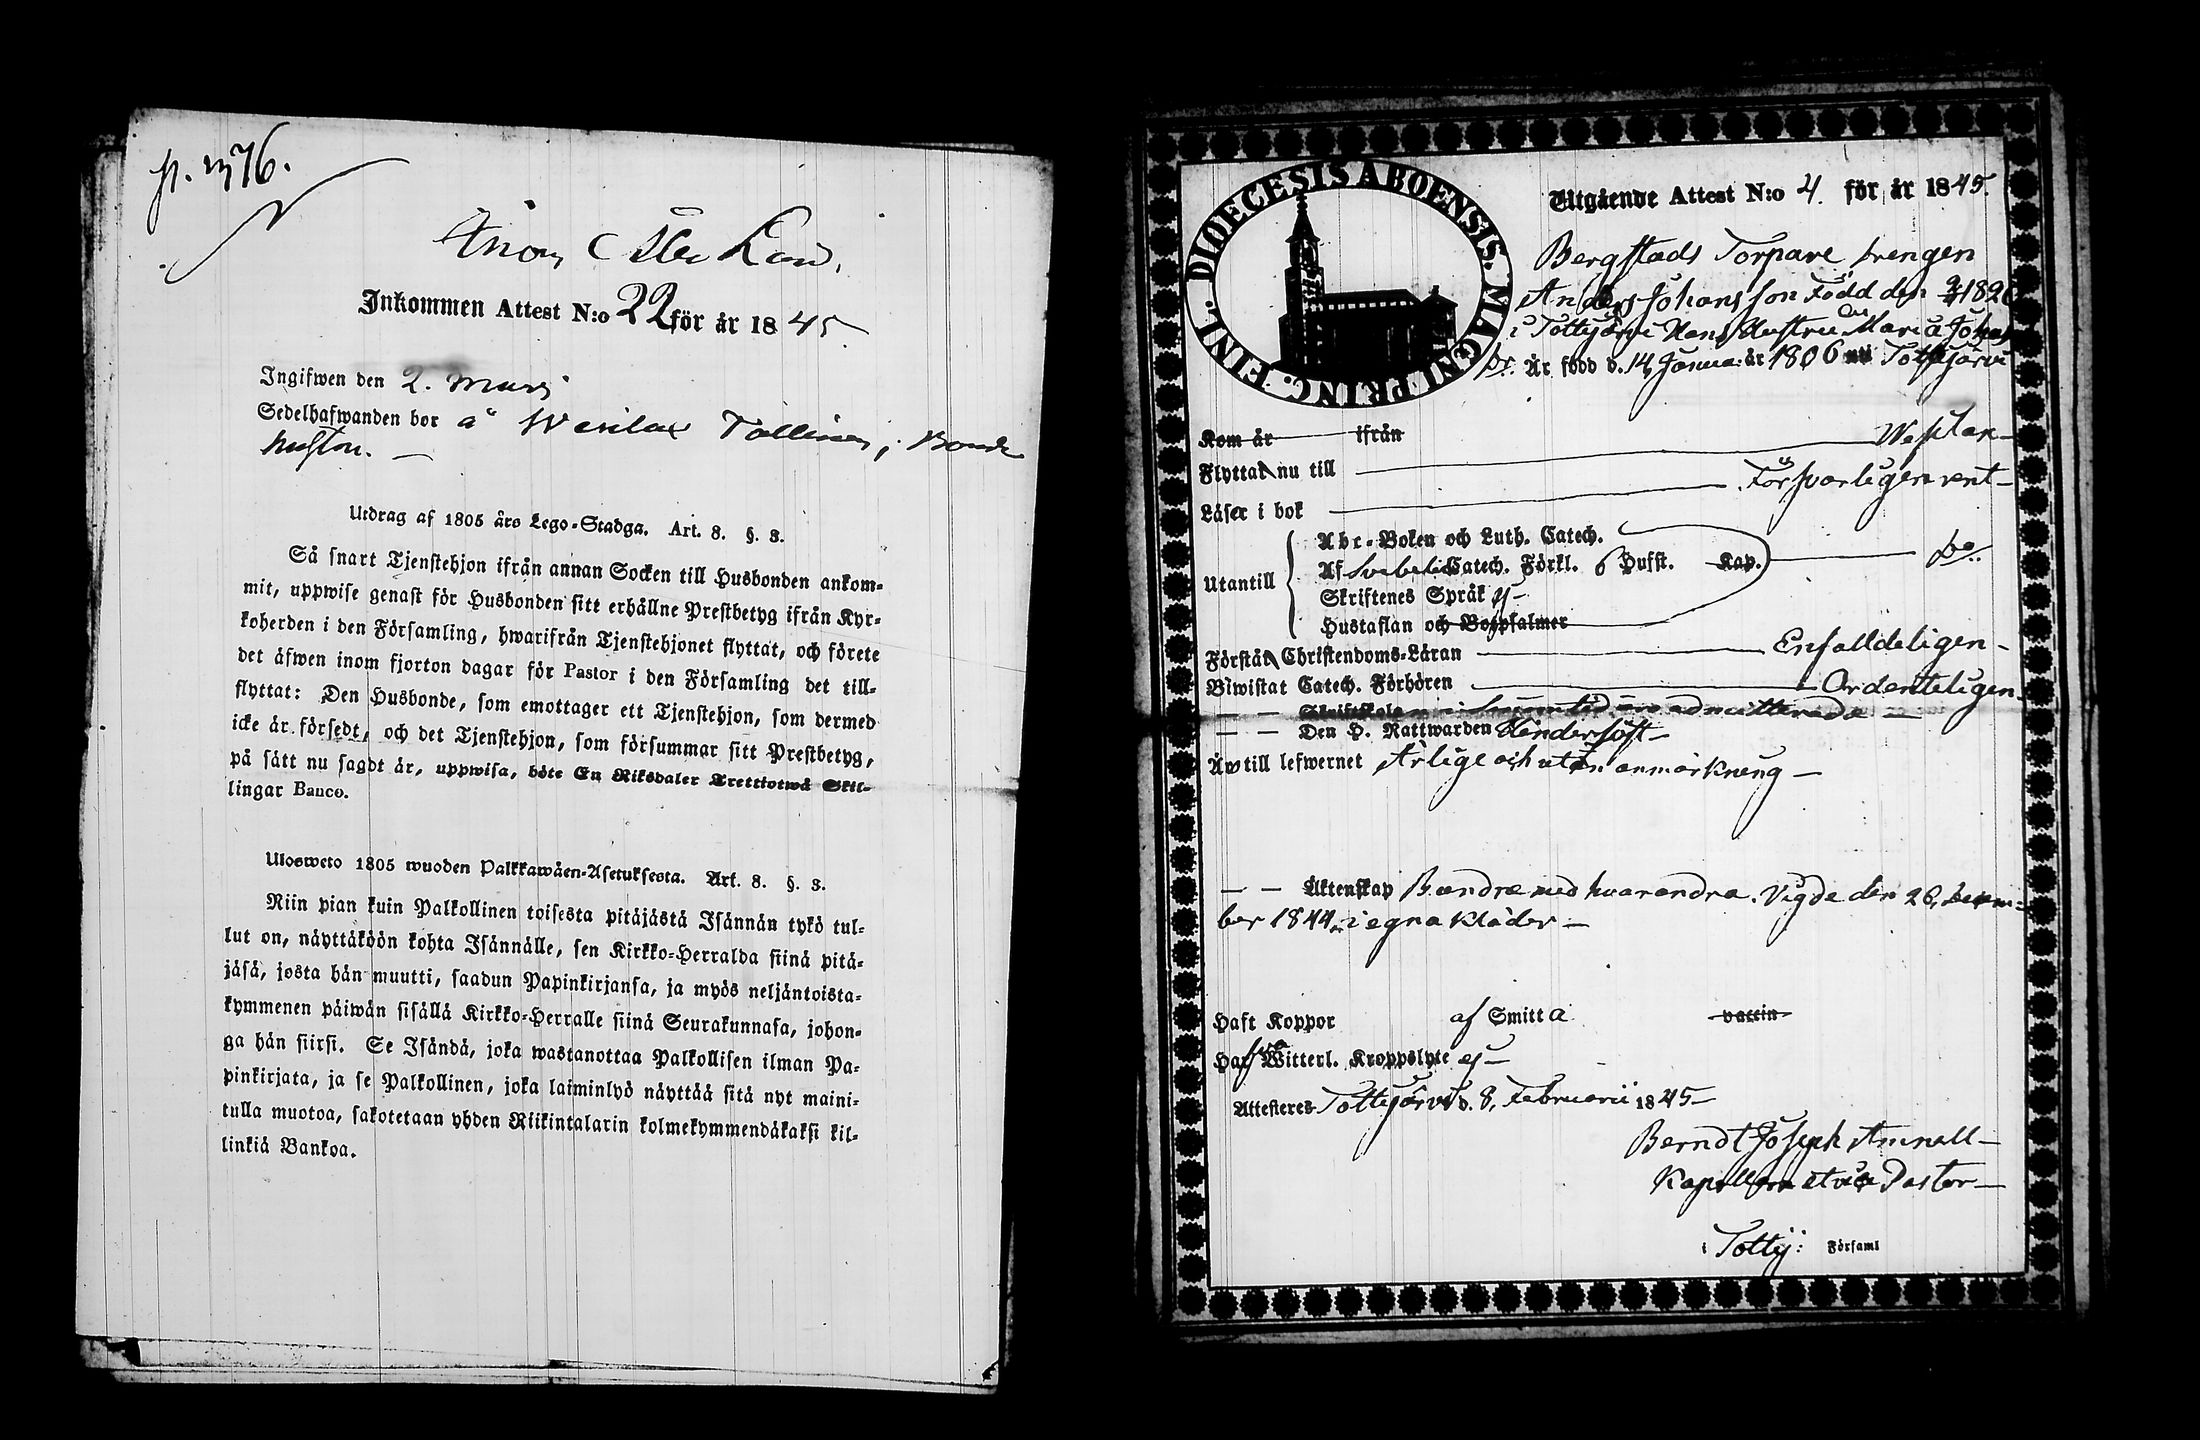 p. 376.
Inkommen Attest N:o 22 för år 1845.
Ingifwen den 2. Mars
Sedelhafwanden bor å Bonde
Utdrag af 1805 års Lego-Stadga. Art. 8. §. 3.
Så snart Tjenstehjon ifrån annan Socken till Husbonden ankom-
mit, uppwise genast för Husbonden sitt erhållne Prestbetyg ifrån Kyr-
koherden i den Församling, hwarifrån Tjenstehjonet flyttat, och förete
det äfwen inom fjorton dagar för Pastor i den Församling det till-
flyttat: Den Husbonde, som emottager ett Tjenstehjon, som dermed
icke är försedt, och det Tjenstehjon, som försummar sitt Prestbetyg,
på sätt nu sagdt är, uppwisa, böte En Riksdaler Trettiotwå Skil-
lingar Banco.
Ulosweto 1805 wuoden Palkkawäen-Asetuksesta. Art. 8. §. 3.
Niin pian kuin Palkollinen toisesta pitäjästä Isännän tykö tul-
lut on, näyttäköön kohta Isännälle, sen Kirkko-Herralda siinä pitä-
jäsä, josta hän muutti, saadun Papinkirjansa, ja myös neljäntoista-
kymmenen päiwän sisällä Kirkko-Herralle siinä Seurakunnasa, johon-
ga hän siirsi. Se Isändä, joka wastanottaa Palkollisen ilman Pa-
pinkirjata, ja se Palkollinen, joka laiminlyö näyttää sitä nyt maini-
tulla muotoa, sakotetaan yhden Riikintalarin kolmekymmendäkaksi kil-
linkiä Bankoa.
FINL. DIOECESIS ABOENSIS. MAGNI PRINC.
Utgående Attest N:o 4. för år 1845.
Bergstads Torpare drengen
Anders Johansson Född den
i Tottijärvi Hans Hustru Maria Johans
dr. Är född d. 14 Januar: år 1806 uti Tottijärvi
Kom år ifrån
Flyttar nu till Westlax
Läser i bok Försvarligen rent
Utantill Abc-Boken och Luth. Catech.
Af Svebelii Catech. Förkl. 6 Hufst. Kap. do.
Skriftenes Språk ej
Hustaflan och Botpsalmer
Förstår Christendoms-Läran Enfalldeligen
Biwistat Catech. Förhören Ordenteligen
— — Skriftskolan admitterade
— — Den H. Nattwarden
Är till lefwernet Ärlige och utan anmärkning
— — Äktenskap Bundne med hvarandra. Vigde den 26, Decem-
ber 1844, i egna kläder
Haft Koppor af Smitta vaccin
Hafva Witterl. Kroppslyte ej
Attesteres Tottijärvi d. 8, Februarii 1845
Berndt Joseph
Kapellan et vice Pastor
i Tottij: Församl